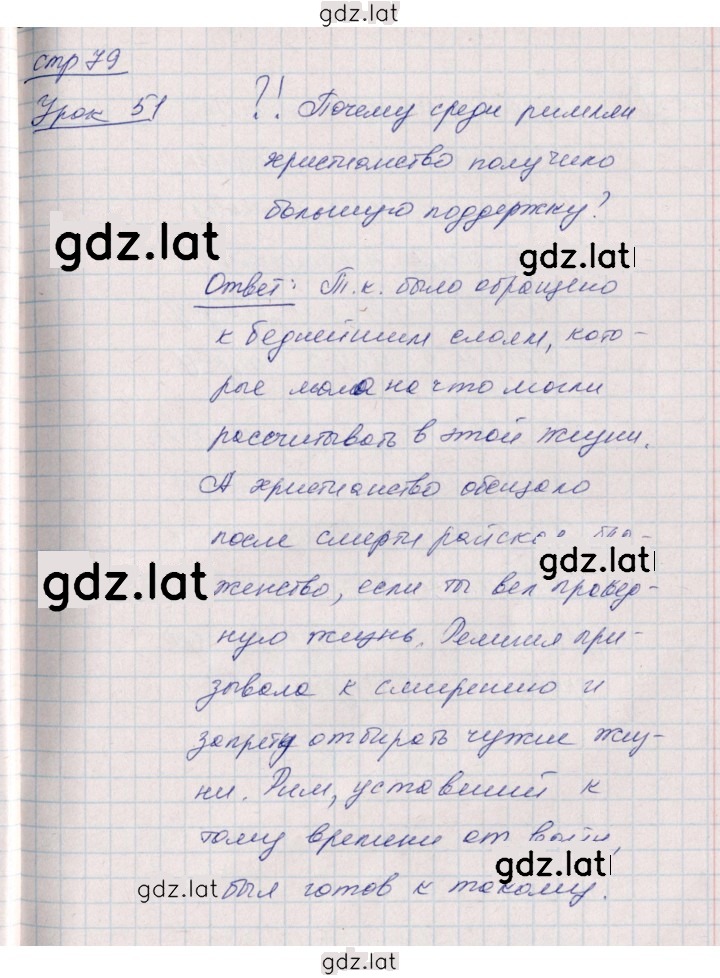 gdz.lat
стр 79
Урок 51
?! Почему среди римлян
христианство получило
большую поддержку?
gdz.lat
gdz.lat
Ответ: Т.к. было обращено
к беднейшим слоям, кото-
рые мало на что могли
рассчитывать в этой жизни.
А христианство обещало
после смерти райское
gdz.lat
gdz.lat
женство, если ты вел правед-
ную жизнь. Религия при-
зывала к смирению и
запрету отбирать чужие жиз-
ни. Рим, уставший к
тому времени от
gdz.lat
gdz.lat
был готов к такому.
gdz.lat